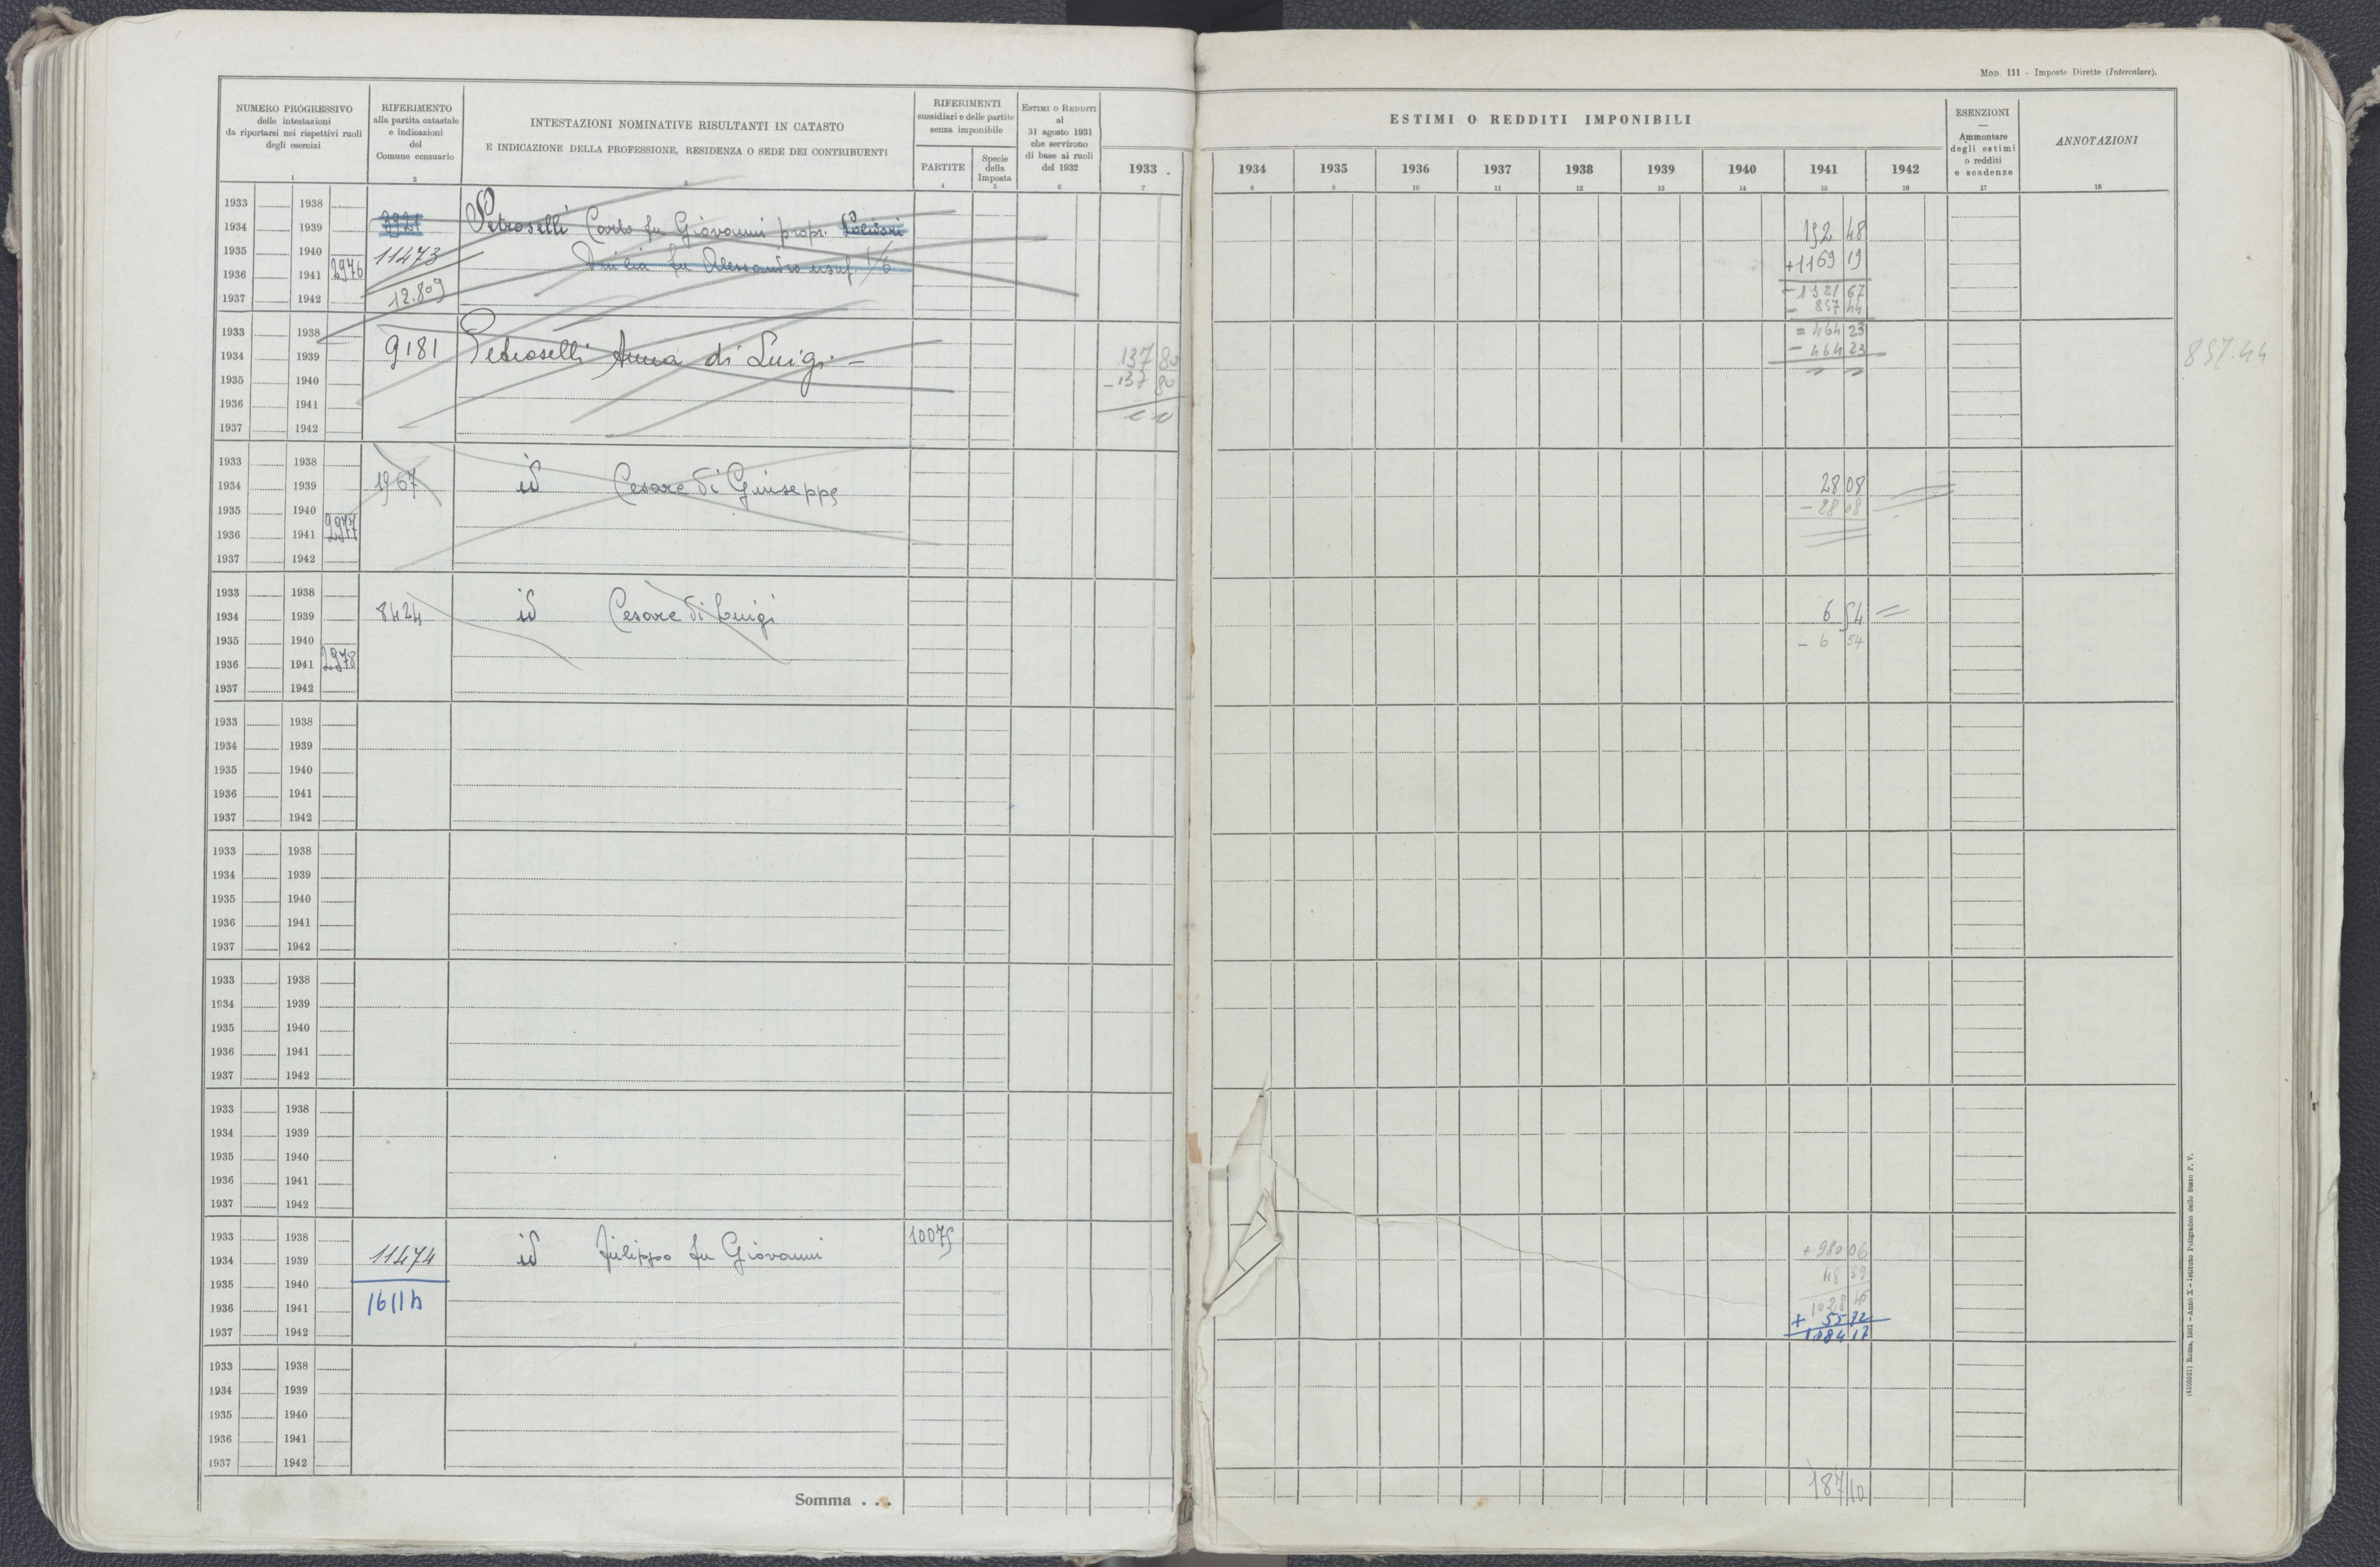 Mod. 111 - Imposte Dirette (Intercalare).
NUMERO PROGRESSIVO
delle intestazioni
da riportarsi nei rispettivi ruoli
degli esercizi
1
RIFERIMENTO
alla partita catastale
e indicazioni
del
Comune censuario
2
INTESTAZIONI NOMINATIVE RISULTANTI IN CATASTO
E INDICAZIONE DELLA PROFESSIONE, RESIDENZA O SEDE DEI CONTRIBUENTI
3
RIFERIMENTI
sussidiari e delle partite
senza imponibile
PARTITE
4
Specie
della
Imposta
5
ESTIMI O REDDITI
al
31 agosto 1931
che servirono
di base ai ruoli
del 1932
6
1933
7
ESTIMI O REDDITI IMPONIBILI
1934 1935 1936 1937 1938 1939 1940 1941 1942
8 9 10 11 12 13 14 15 16
ESENZIONI
—
Ammontare
degli estimi
o redditi
e scadenze
17
ANNOTAZIONI
18
1933 1938
1934 1939 Petroselli Carlo fu Giovanni propr. 192 48
1935 1940 11473 fu Alessandro usuf 1/6 +1169 19
1936 1941 2976
1937 1942 12.809 - 857 44
1933 1938 = 464 23
1934 1939 9181 Petroselli Anna di Luigi - 137 80 - 464 23 857.44
1935 1940 - 137 80
1936 1941
1937 1942
1933 1938
1934 1939 1967 id Cesare di Giuseppe 28 08
1935 1940 - 28 08
1936 1941 2977
1937 1942
1933 1938
1934 1939 8424 id Cesare di Luigi 6 54 =
1935 1940 - 6 54
1936 1941 2978
1937 1942
1933 1938
1934 1939
1935 1940
1936 1941
1937 1942
1933 1938
1934 1939
1935 1940
1936 1941
1937 1942
1933 1938
1934 1939
1935 1940
1936 1941
1937 1942
1933 1938
1934 1939
1935 1940
1936 1941
1937 1942
1933 1938 10075
1934 1939 11474 id Filippo fu Giovanni + 980 06
1935 1940 48 39
1936 1941 16114 1028 45
1937 1942 + 55 72
1084 17
1933 1938
1934 1939
1935 1940
1936 1941
1937 1942
Somma . . . 187 10
Roma, 1931 - Anno X - Istituto Poligrafico dello Stato P. V.